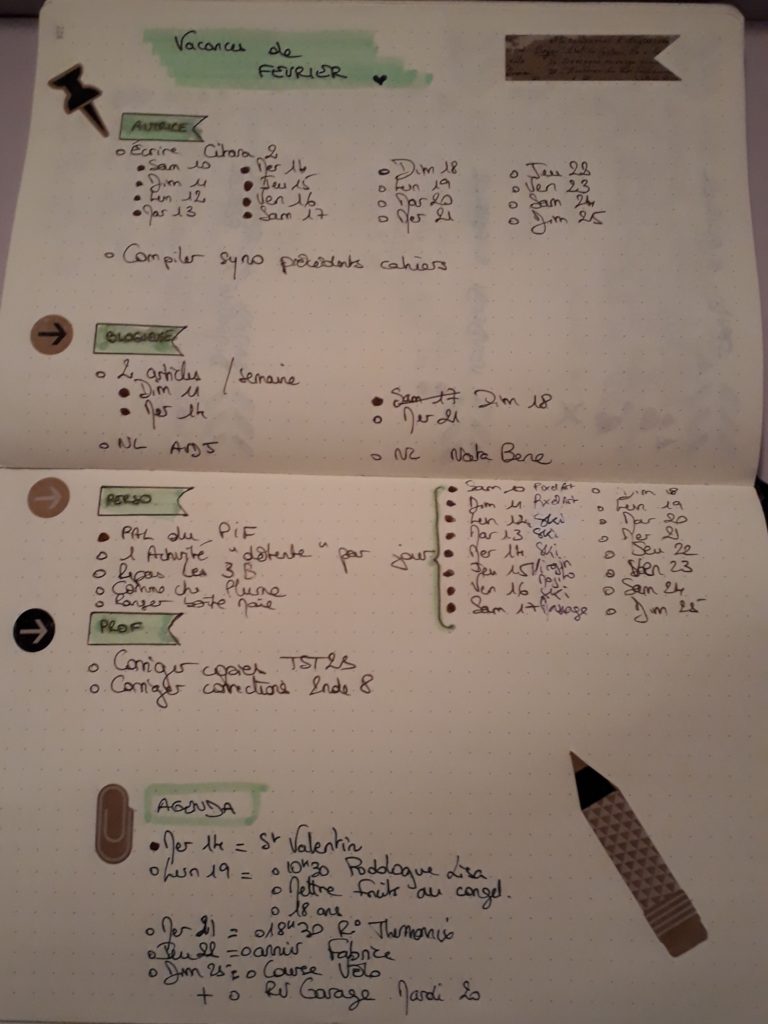 Vacances de
FEVRIER
AUTRICE
Écrire Citara 2
Sam 10
Dim 11
Lun 12
Mar 13
Mer 14
Jeu 15
Ven 16
Sam 17
Dim 18
Lun 19
Mar 20
Mer 21
Jeu 22
Ven 23
Sam 24
Dim 25
Compiler syno précédents cahiers
BLOGUEUSE
2 articles / semaine
Dim 11
Mer 14
Sam 17 Dim 18
Mer 21
NL
NL Nota Bene
PERSO
PAL du PIF
1 Activité "détente" par jour
Repas les 3 B
Plume
Ranger boîte
Sam 10 Pixel Art
Dim 11 Pixel Art
Lun 12 Ski
Mar 13 Ski
Mer 14 Ski
Jeu 15 Virgin Mojito
Ven 16 Ski
Sam 17
Dim 18
Lun 19
Mar 20
Mer 21
Jeu 22
Ven 23
Sam 24
Dim 25
PROF
Corriger copies TST2S
Corriger corrections 2nde 8
AGENDA
Mer 14 = St Valentin
Lun 19 = 10H30 Podologue Lisa
Mettre fruits au congel.
18 ans
Mer 21 = 18H30 R°
Jeu 22 = Fabrice
Dim 25 = Course Vélo
+ RV Garage Mardi 20